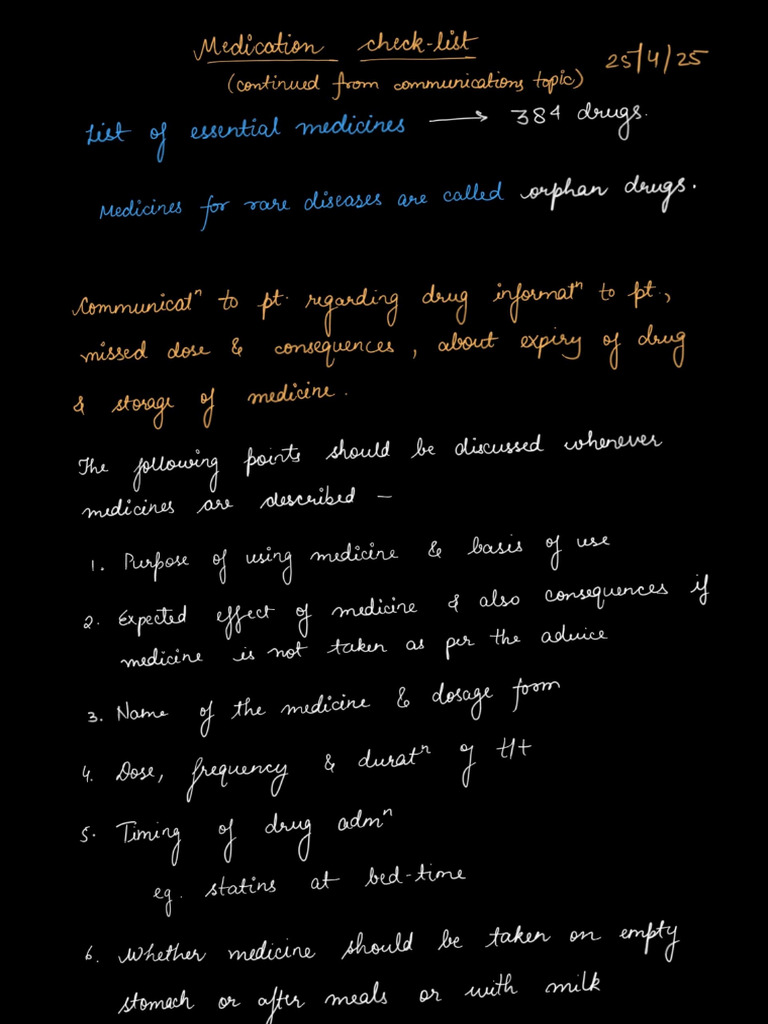 Medication check-list
25/4/25
(continued from communications topic)
List of essential medicines → 384 drugs.
Medicines for rare diseases are called orphan drugs.
Communicatⁿ to pt. regarding drug informatⁿ to pt.,
missed dose & consequences, about expiry of drug
& storage of medicine.
The following points should be discussed whenever
medicines are described –
1. Purpose of using medicine & basis of use
2. Expected effect of medicine & also consequences if
medicine is not taken as per the advice
3. Name of the medicine & dosage form
4. Dose, frequency & duratⁿ of t/t
5. Timing of drug admⁿ
eg. statins at bed-time
6. Whether medicine should be taken on empty
stomach or after meals or with milk